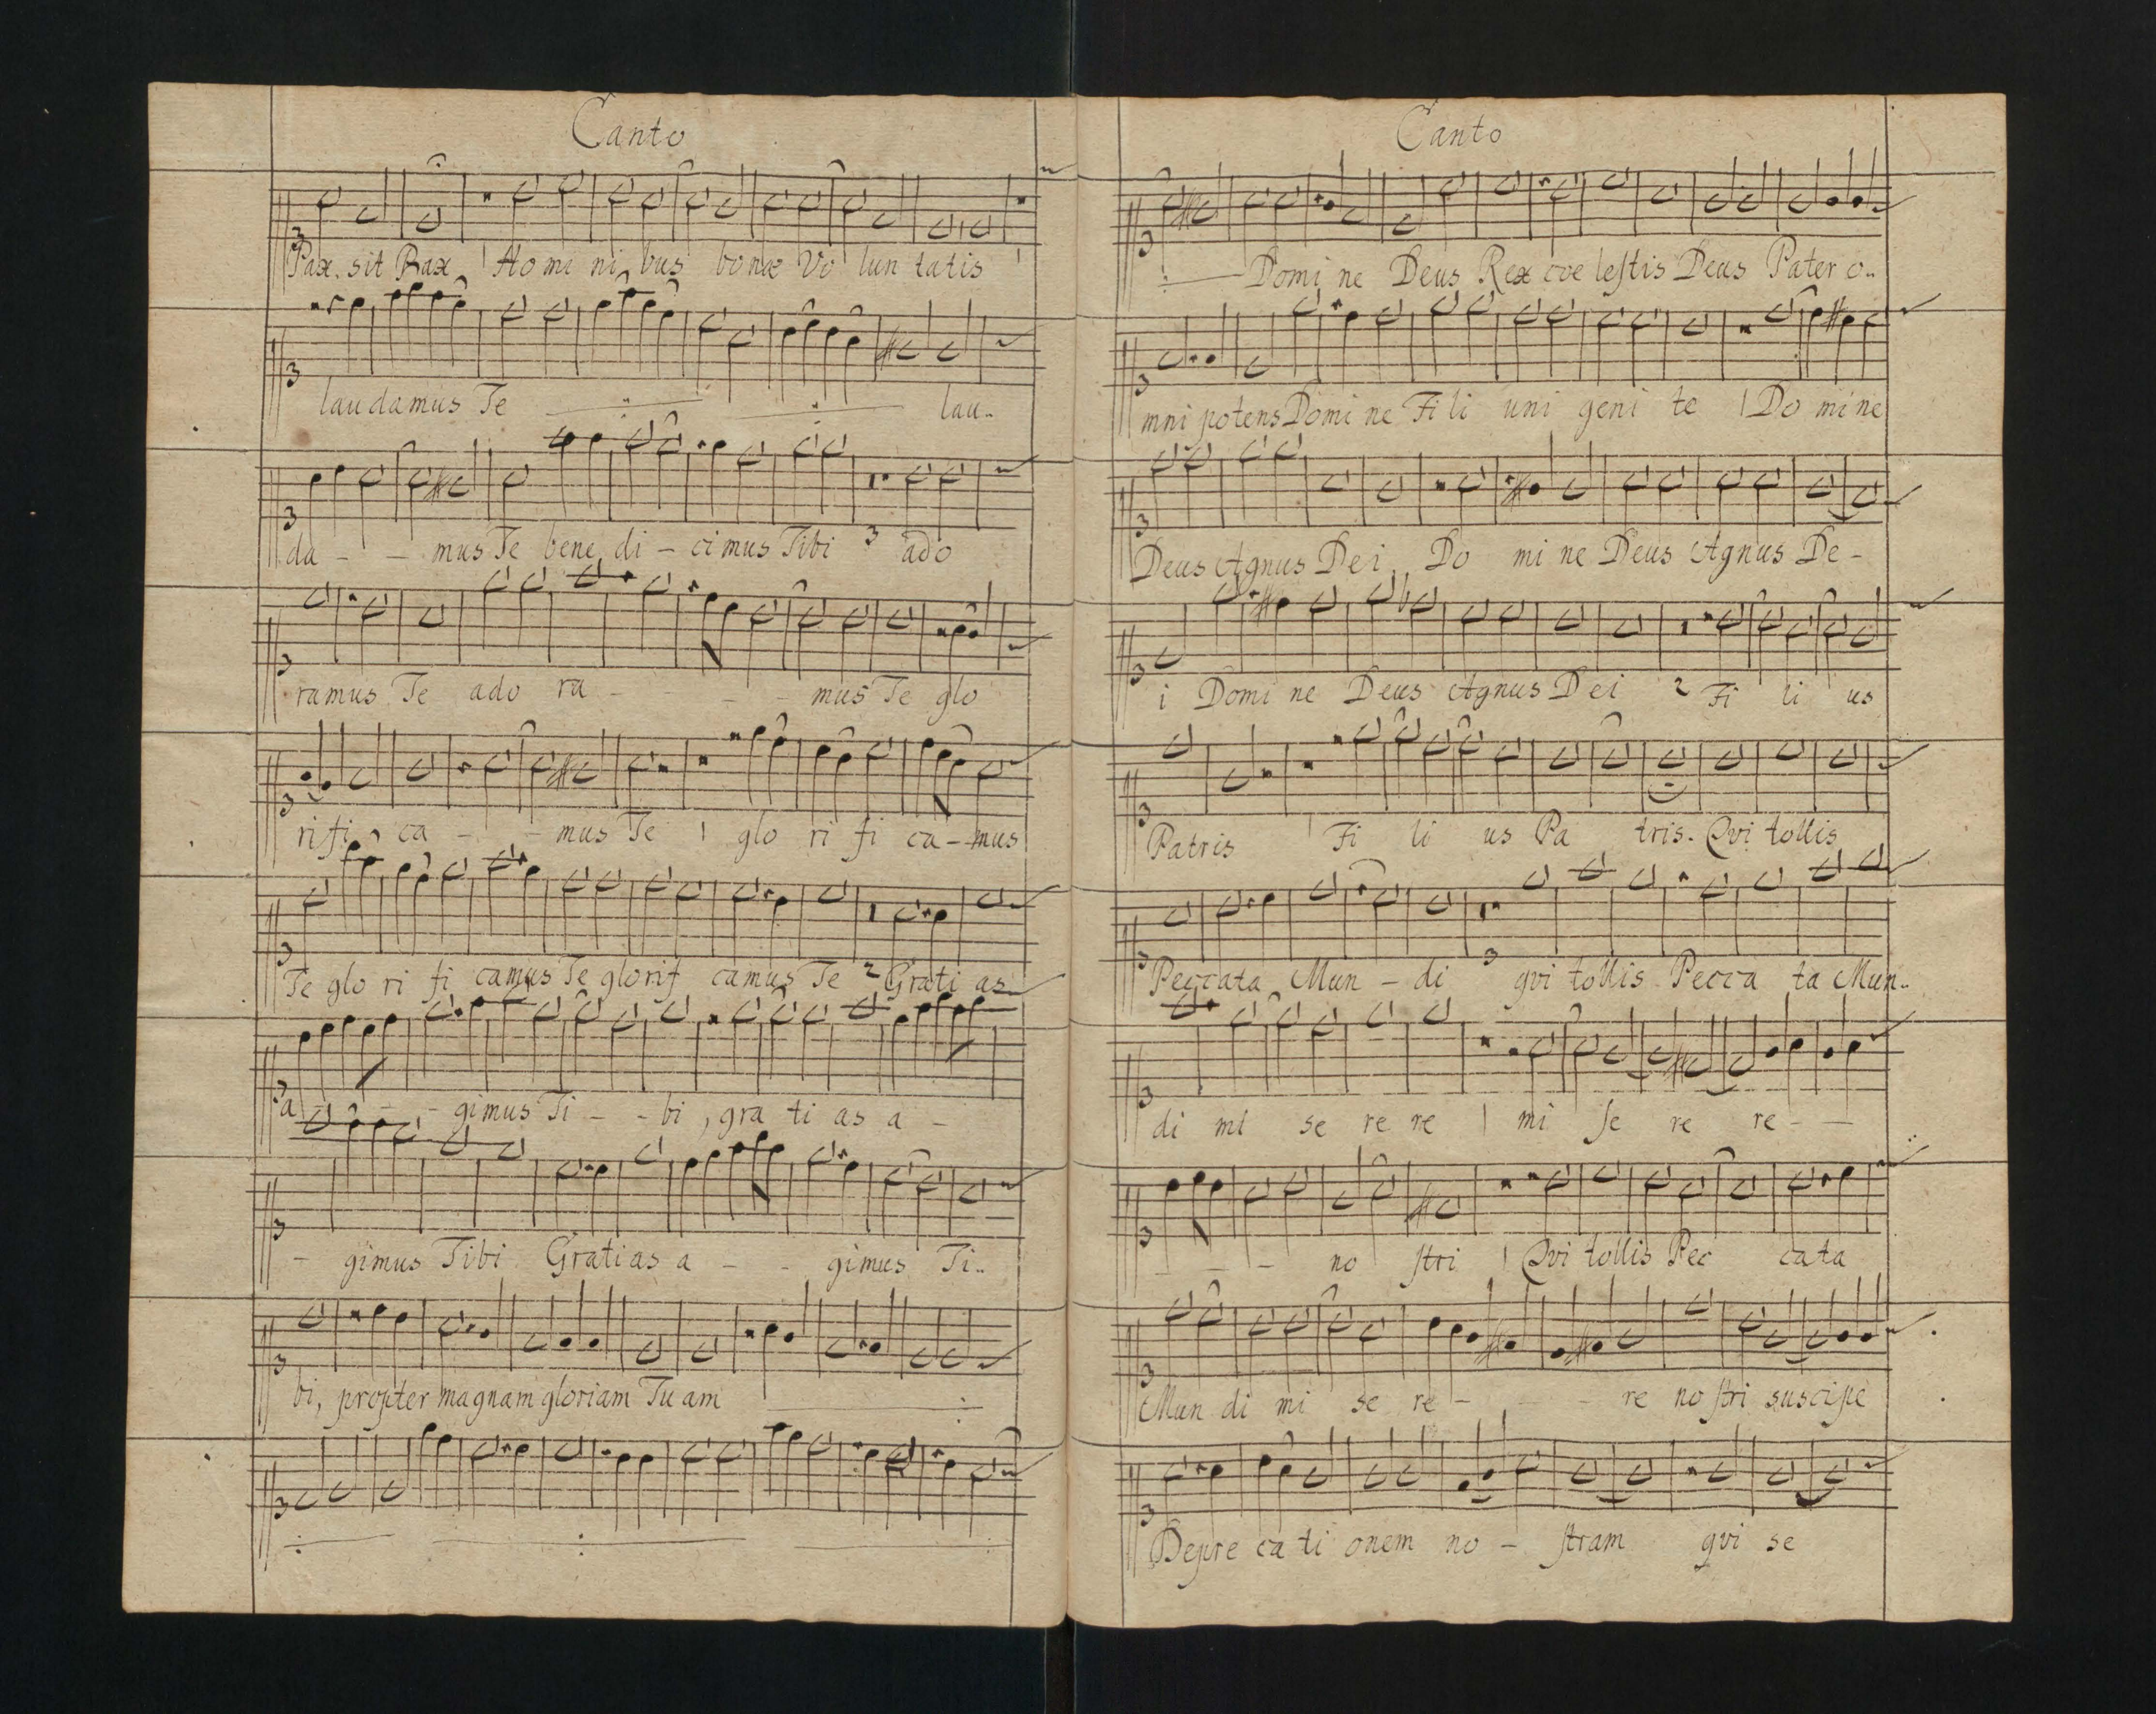 Canto
Pax sit Pax 1 Ho mi ni bus bonæ Vo lun tatis 1
laudamus Te lau..
da - - mus Te bene di - ci mus Tibi 3 ado
ramus Te ado ra - - - mus Te glo
rifi ca - - mus Te 1 glo ri fi ca - mus
Te glo ri fi camus Te glorif camus Te 2 Grati as
a - - - gimus Ti - - bi, gra ti as a -
- gimus Tibi Gratias a - - gimus Ti..
bi, propter magnam gloriam Tu am
Canto
Domi ne Deus Rex cœ leſtis Deus Pater o..
mni potens Domi ne Fi li uni geni te 1 Do mi ne
Deus Agnus Dei Do mi ne Deus Agnus De -
i Domi ne Deus Agnus Dei 2 Fi li us
Patris 1 Fi li us Pa tris. Qvi tollis
Peccata Mun - di 3 qvi tollis Pecca ta Mun..
di mi se re re 1 mi ſe re re - -
- - - no ſtri 1 Qvi tollis Pec cata
Mun di mi se re - - - re no ſtri suscipe
Depre ca ti onem no - ſtram qvi se